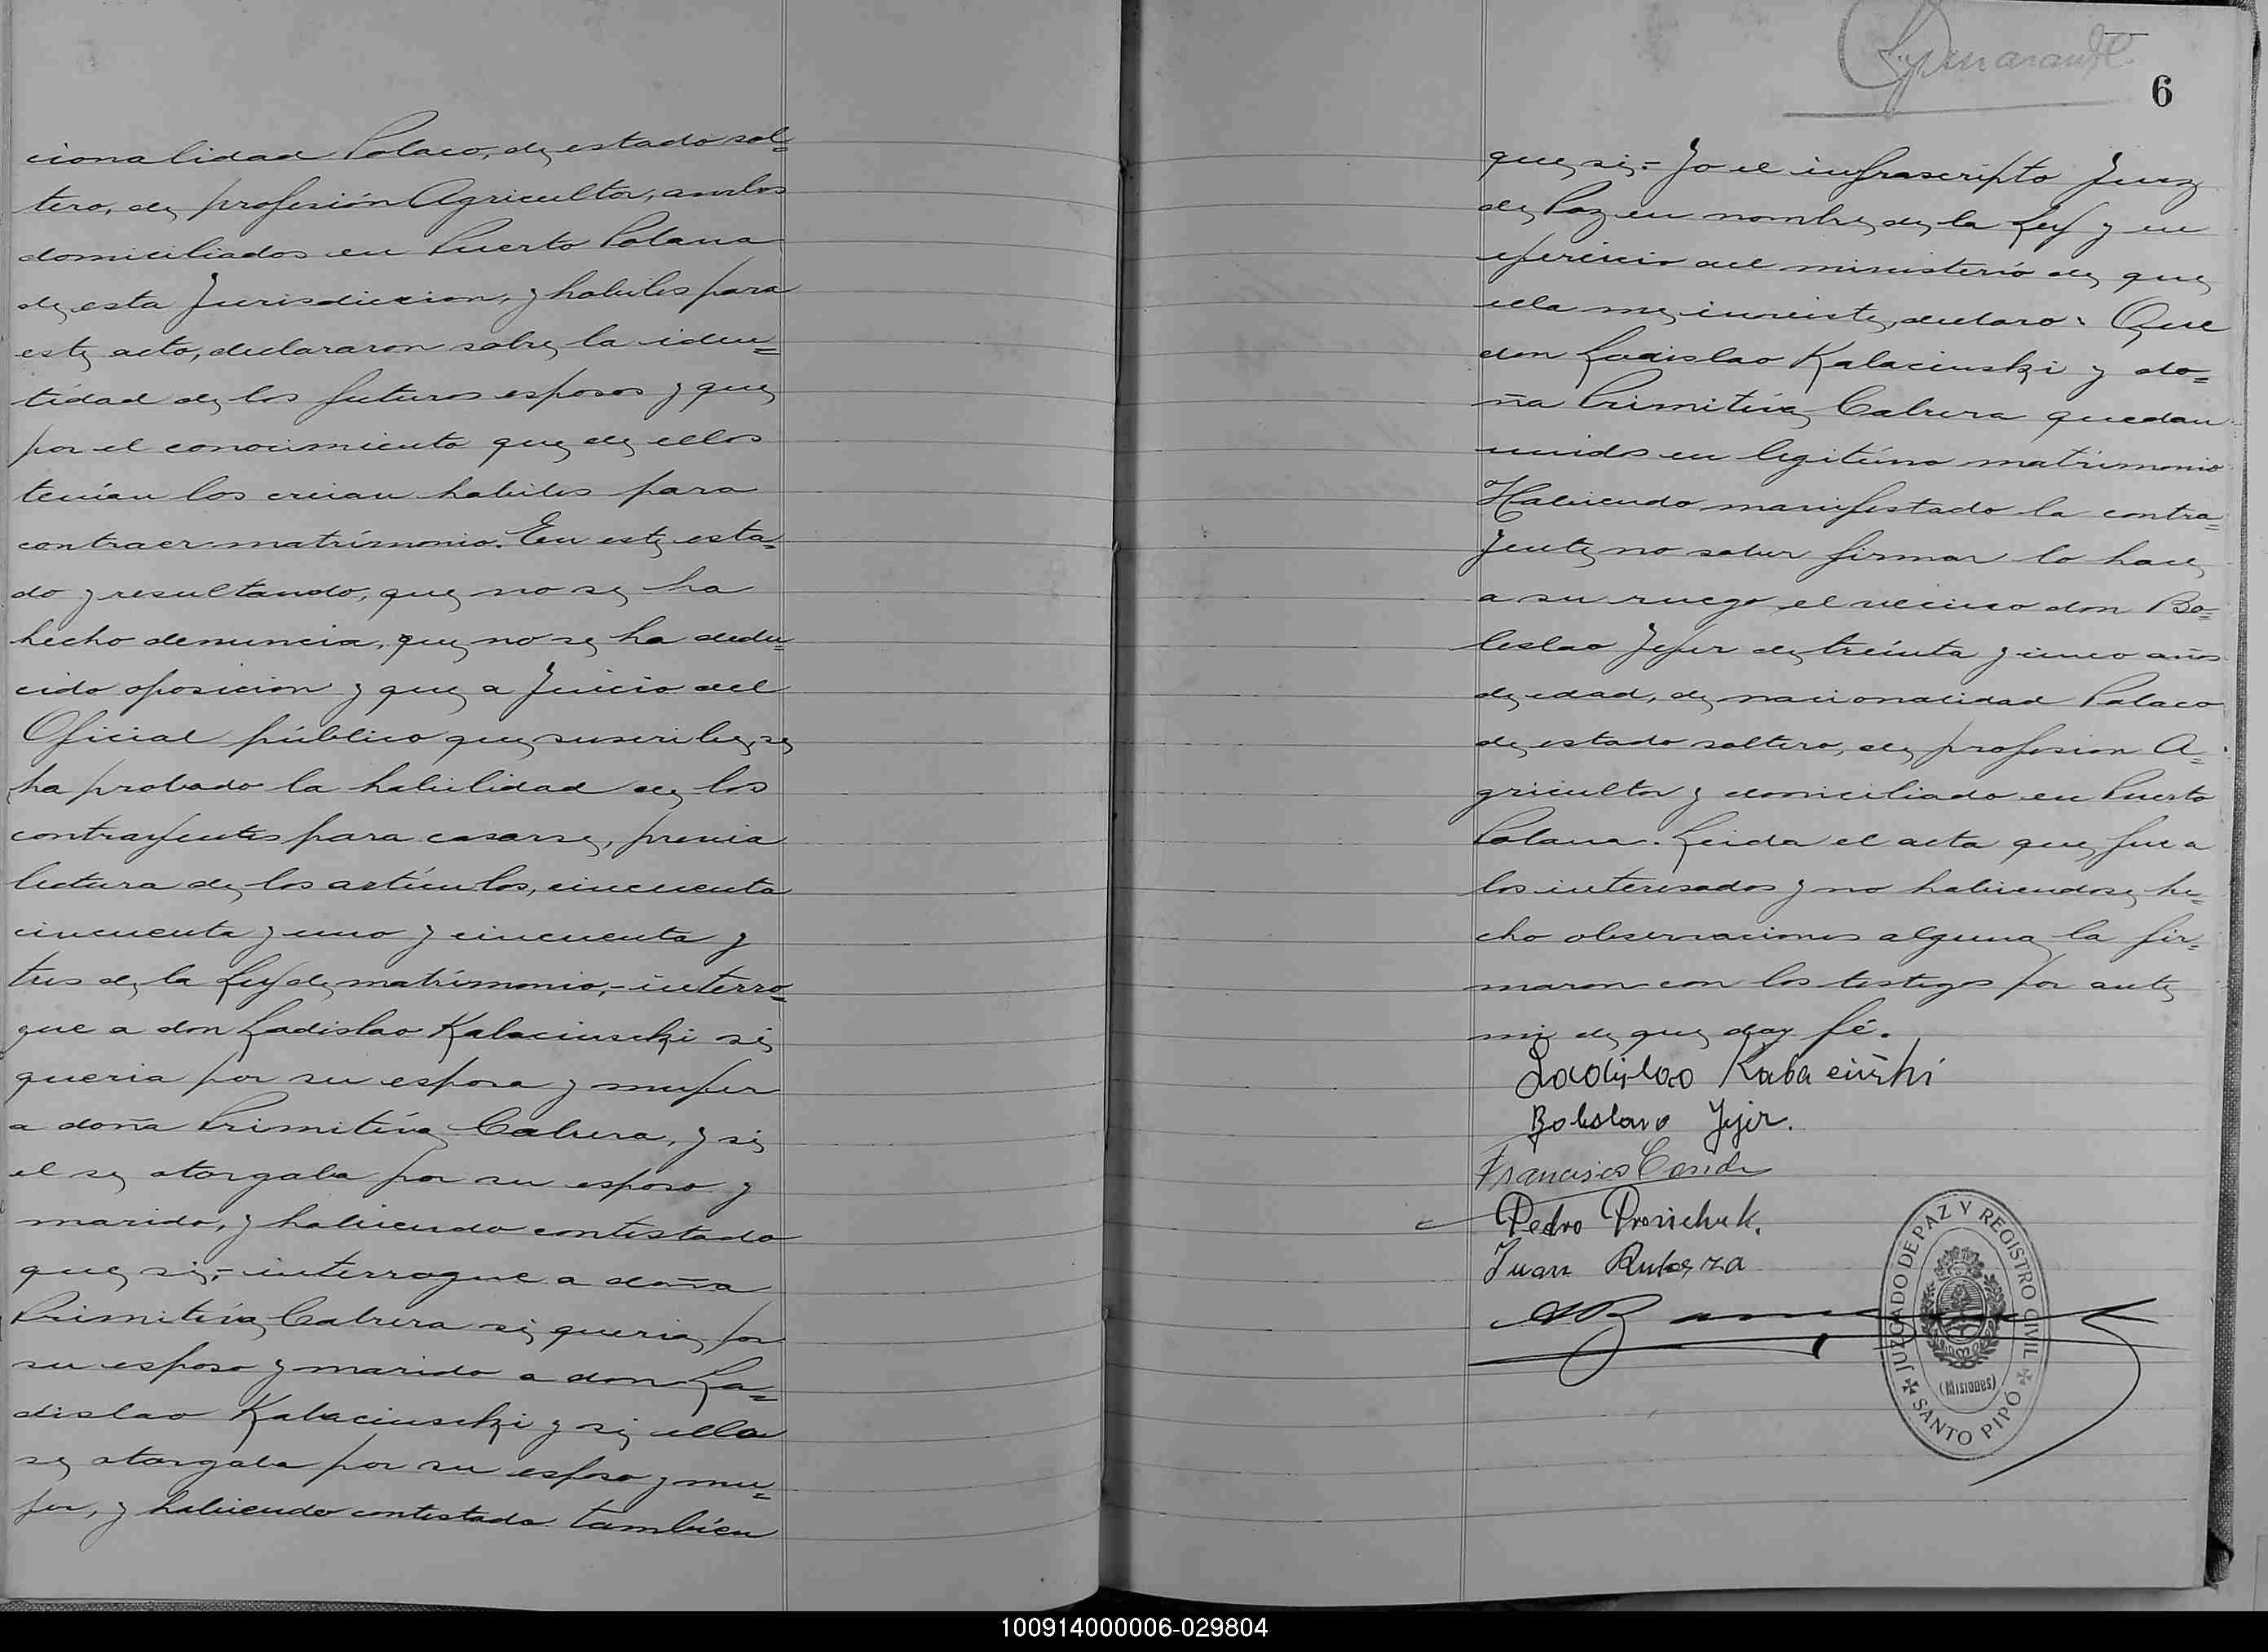 cionalidad Polaco, de estado sol=
tero, de profesión Agricultor, ambos
domiciliados en Puerto Polana
de esta Jurisdiccion, y habiles para
este acto, declararon sobre la iden=
tidad de los futuros esposos y que
por el conocimiento que de ellos
tenían los creian habiles para
contraer matrimonio. En este esta=
do y resultando, que no se ha
hecho denuncia, que no se ha dedu=
cido oposicion y que a Juicio del
Oficial público que suscribe, se
ha probado la habilidad de los
contrayentes para casarse, previa
lectura de los artículos, cincuenta
cincuenta y uno y cincuenta y
tres de la Ley de matrimonio,- interro=
gue a don Ladislao Kalacinscki si
queria por su esposa y mujer
a doña Primitiva Cabrera, y si
el se otorgaba por su esposo y
marido, y habiendo contestado
que si,- interrogue a doña
Primitiva Cabrera si queria por
su esposo y marido a don La=
dislao Kalacinscki y si ella
se otorgaba por su esposa y mu=
jer, y habiendo contestado también
6
que si.- Yo el infrascripto Juez
de Paz en nombre de la Ley y en
ejercicio del ministerio de que
ella me inviste, declaro: Que
don Ladislao Kalacinski y do=
ña Primitiva Cabrera quedan
unidos en legitimo matrimonio
Habiendo manifestado la contra=
yente no saber firmar lo hace
a su ruego el vecino don Bo=
leslao Jejer de treinta y cinco años
de edad, de nacionalidad Polaco
de estado soltero, de profesion A=
gricultor y domiciliado en Puerto
Polana. Leida el acta que fue a
los interesados y no habiendose he=
cho observaciones alguna la fir=
maron con los testigos por ante
mi de que doy fé.
Ladislao Kaba ciński
Boleslavo Jejer.
Francisco Conde
Pedro Pronichuk.
Juan
JUZGADO DE PAZ Y REGISTRO CIVIL
(Misiones)
SANTO PIPÓ
100914000006-029804